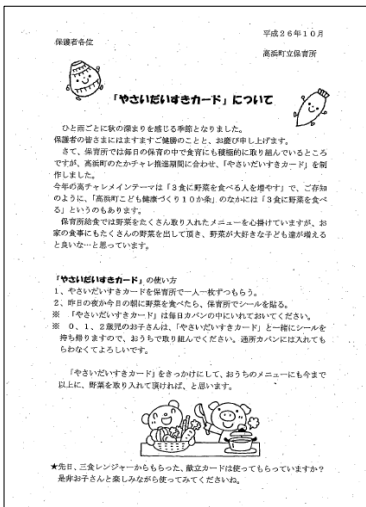 平成２６年１０月
保護者各位
高浜町立保育所
「やさいだいすきカード」について
ひと雨ごとに秋の深まりを感じる季節となりました。
保護者の皆さまにはますますご健勝のことと、お慶び申し上げます。
さて、保育所では毎日の保育の中で食育にも積極的に取り組んでいるところ
ですが、高浜町のたかチャレ推進期間に合わせ、「やさいだいすきカード」を制
作しました。
今年の高チャレメインテーマは「３食に野菜を食べる人を増やす」で、ご存知
のように、「高浜町こども健康づくり１０か条」のなかには「３食に野菜を食べ
る」というのもあります。
保育所給食では野菜をたくさん取り入れたメニューを心掛けていますが、お
家の食事にもたくさんの野菜を出して頂き、野菜が大好きな子ども達が増える
と良いな…と思っています。
「やさいだいすきカード」の使い方
１、やさいだいすきカードを保育所で一人一枚ずつもらう。
２、昨日の夜か今日の朝に野菜を食べたら、保育所でシールを貼る。
※　「やさいだいすきカード」は毎日カバンの中にいれておいてください。
※　０、１、２歳児のお子さんは、「やさいだいすきカード」と一緒にシールを
持ち帰りますので、おうちで取り組んでください。通所カバンには入れても
らわなくてよろしいです。
「やさいだいすきカード」をきっかけにして、おうちのメニューにも今まで
以上に、野菜を取り入れて頂ければ、と思います。
★先日、三食レンジャーからもらった、献立カードは使ってもらっていますか？
是非お子さんと楽しみながら使ってみてくださいね。